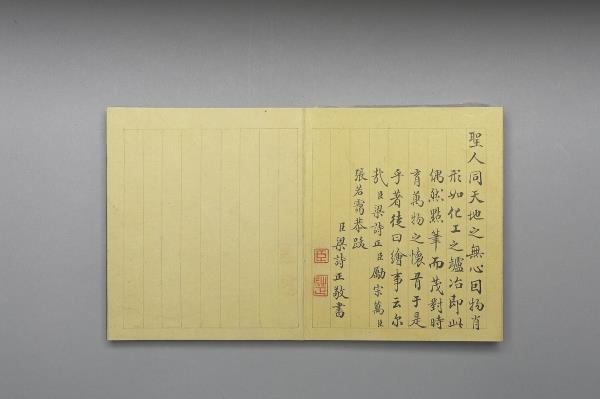 聖人同天地之無心因物肖
形如化工之鑪冶即此
偶然點筆而茂對時
育萬物之懷胥于是
乎著徒曰繪事云尔
哉臣梁詩正臣勵宗萬臣
張若靄恭跋
臣梁詩正敬書
臣